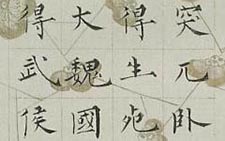 突兀卧
得生
大魏國
得武侯